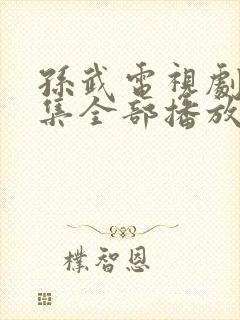 孫武電視劇
集全部播放
樸智恩